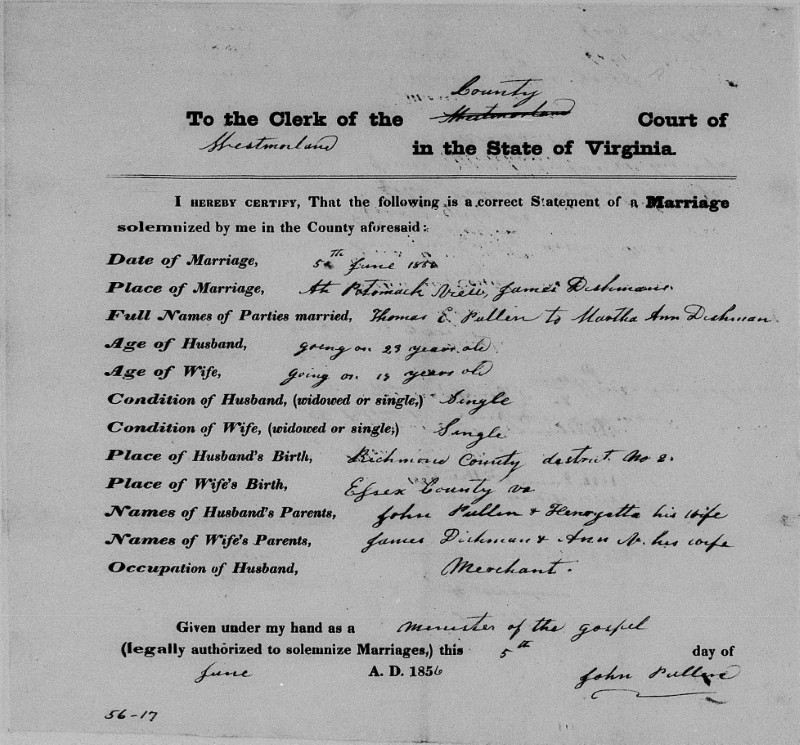 County
To the Clerk of the Westmorland Court of
Westmorland in the State of Virginia.
I HEREBY CERTIFY, That the following is a correct Statement of a Marriage
solemnized by me in the County aforesaid:
Date of Marriage, 5th June 1856
Place of Marriage, At Potomack View, James Dishmans.
Full Names of Parties married, Thomas E. Pullen to Martha Ann Dishman.
Age of Husband, going on 23 years old
Age of Wife, going on years old
Condition of Husband, (widowed or single,) Single
Condition of Wife, (widowed or single,) Single
Place of Husband's Birth, Richmond County destrict No 2.
Place of Wife's Birth, Essex County va
Names of Husband's Parents, John Pullen & Henryetta his wife
Names of Wife's Parents, James Dichman & Ann N. his wife
Occupation of Husband, Merchant.
Given under my hand as a minester of the gospel
(legally authorized to solemnize Marriages,) this 5th day of
June A. D. 1856 John Pullen
56-17